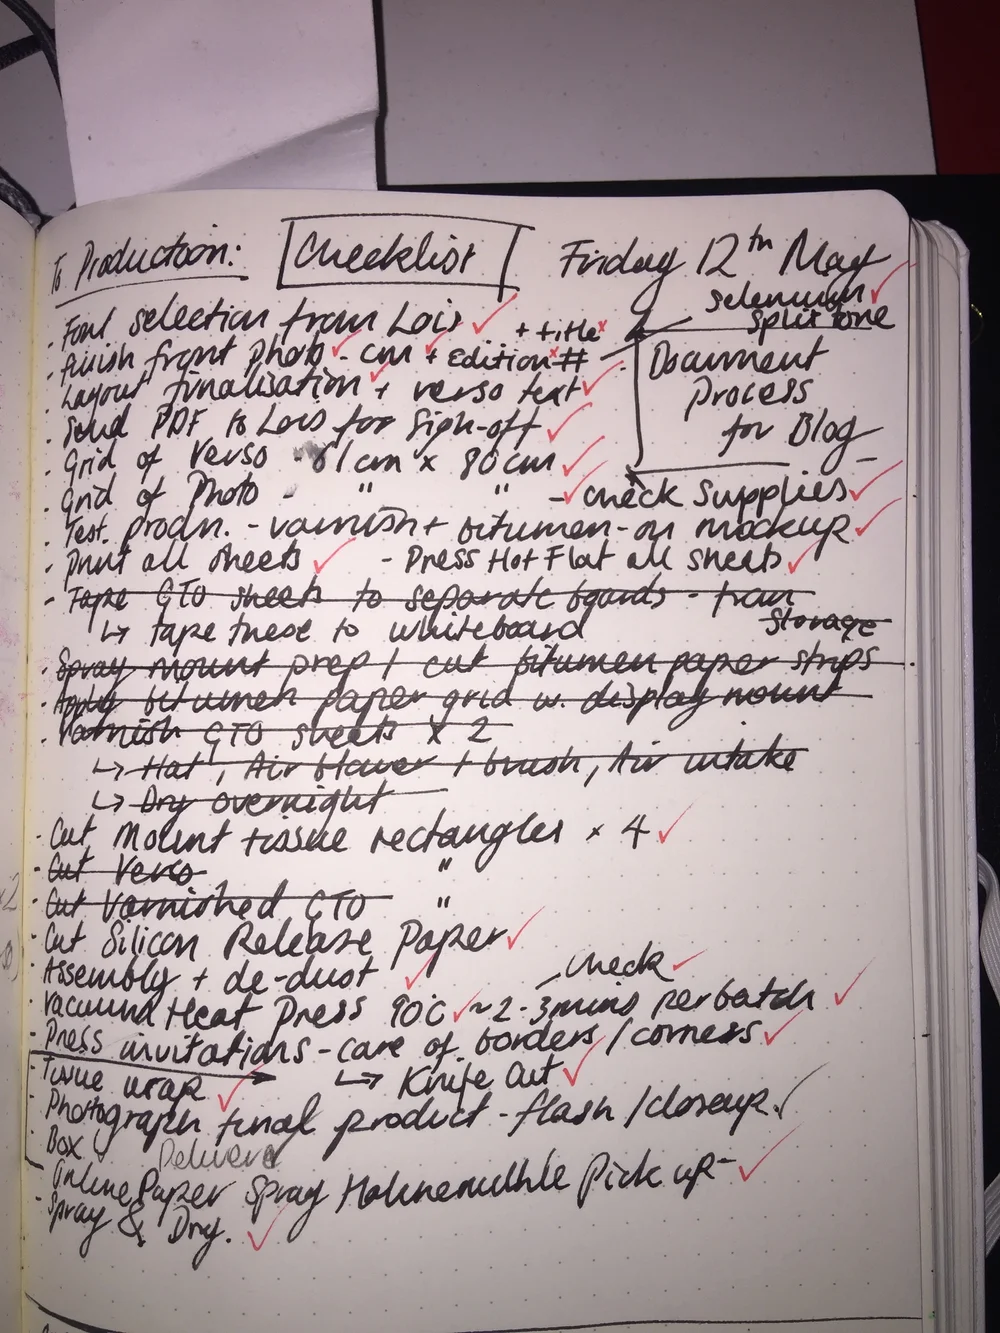 To Production: Checklist Friday 12th May
· Font selection from Lois ✓ selenium ✓
+ title x split tone
· Finish front photo ✓ - cm ✓ + Edition x #
· Layout finalisation ✓ + verso text ✓ Document
· Send PDF to Lois for Sign-off ✓ Process
for Blog
· Grid of Verso - 61cm x 80cm ✓
· Grid of Photo - " " - ✓ check supplies ✓
· Test prodn. - varnish + bitumen - on mockup ✓
· Print all sheets ✓ - Press Hot Flat all sheets ✓
· Tape GTO sheets to separate boards - from
storage
↳ tape these to whiteboard
· Spray mount prep / cut bitumen paper strips
· Apply bitumen paper grid w. display mount
· Varnish GTO sheets x 2
↳ Hat, Air blower + brush, Air intake
↳ Dry overnight
· Cut Mount tissue rectangles x 4 ✓
· Cut Verso "
· Cut Varnished GTO "
· Cut Silicon Release Paper ✓
· Assembly + de-dust ✓ check ✓
· Vacuum Heat Press 90C ✓ ~ 2-3mins per batch ✓
· Press invitations - care of borders / corners ✓
· Tissue wrap ✓ ↳ Knife Cut ✓
· Photograph final product - flash / closeup. ✓
· Box Delivered
· Online Paper Spray Hahnemulhle Pick up - ✓
· Spray & Dry. ✓